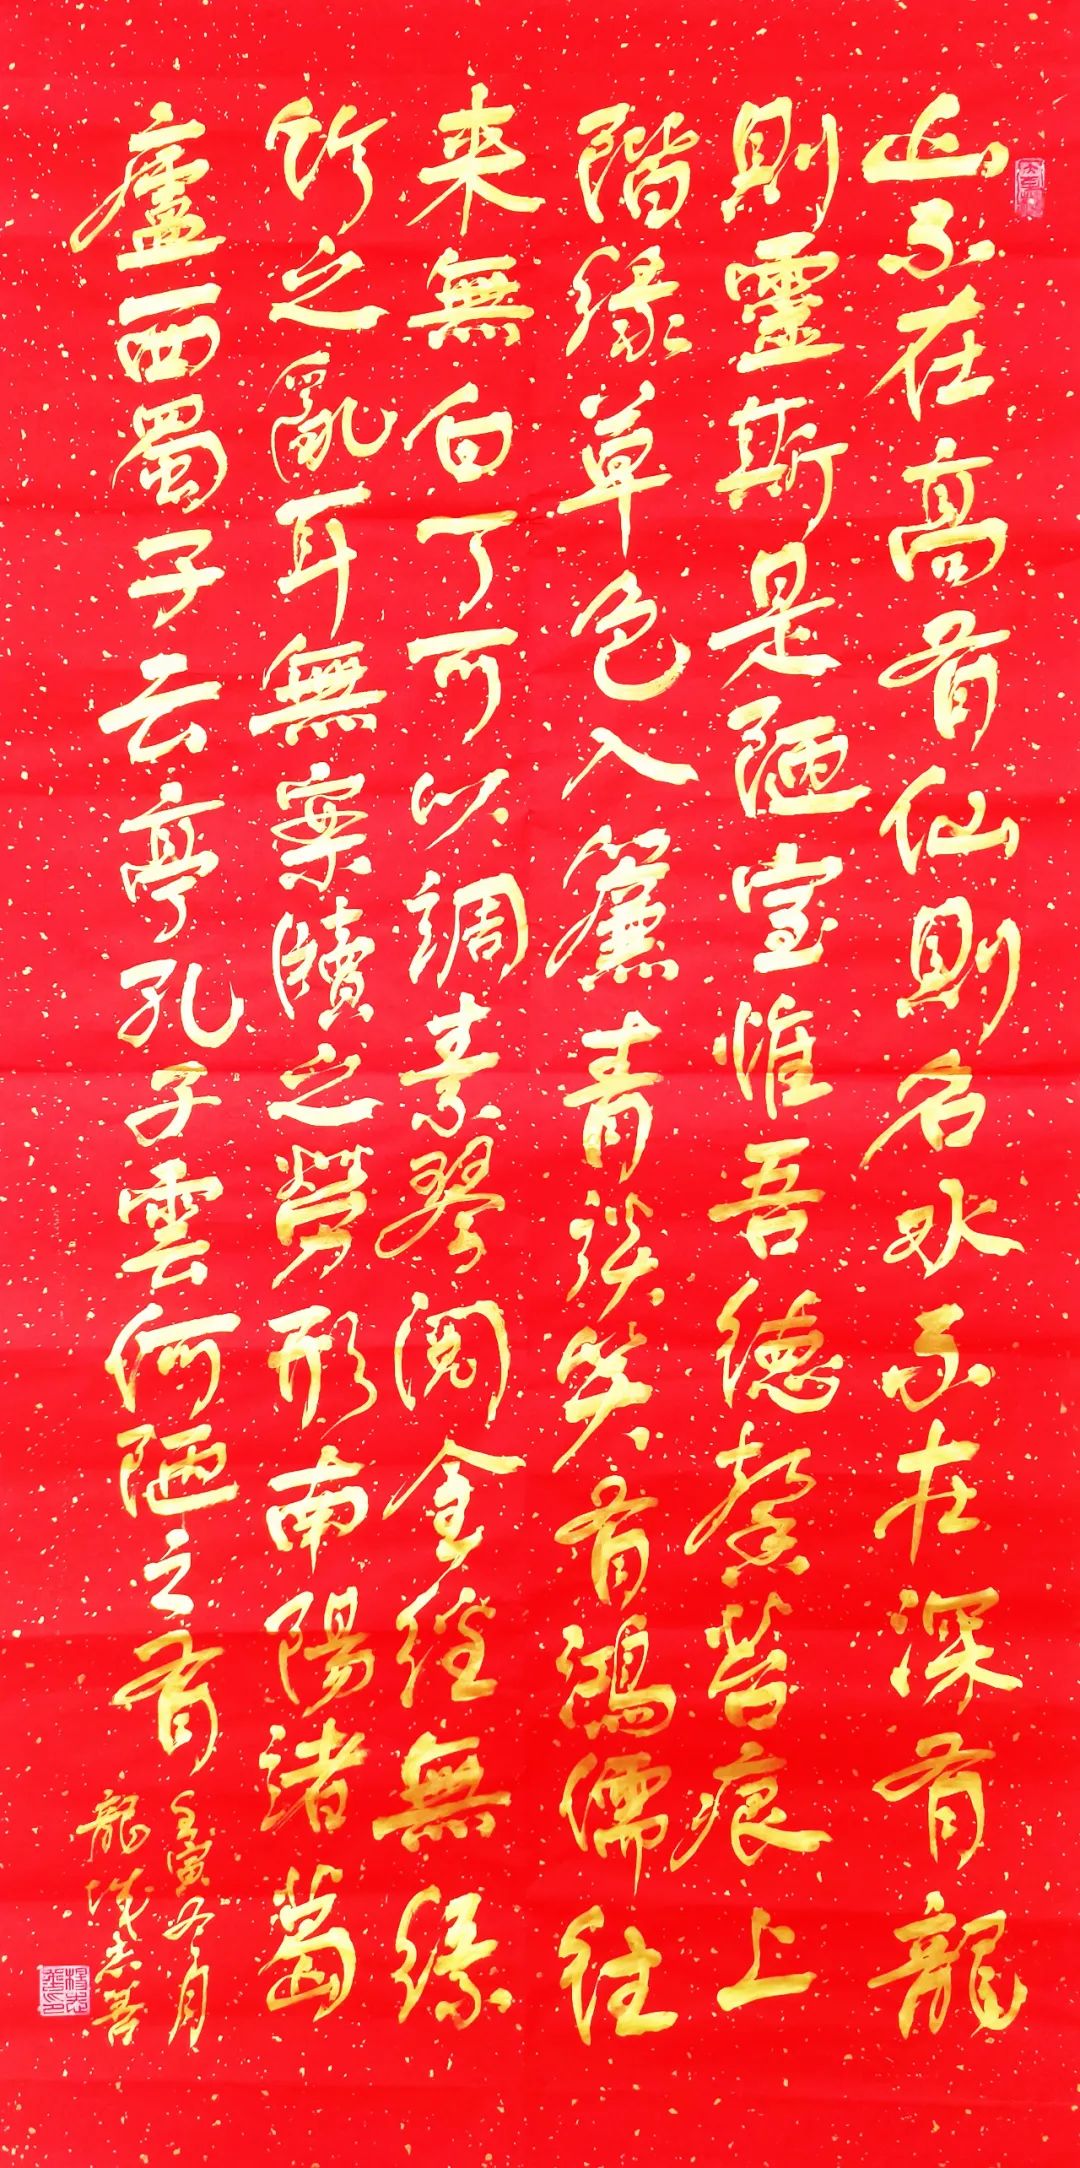 山不在高有仙則名水不在深有龍
則靈斯是陋室惟吾德馨苔痕上
階綠草色入簾青談笑有鴻儒往
来無白丁可以調素琴閱金經無絲
竹之亂耳無案牘之勞形南陽諸葛
廬西蜀子云亭孔子雲何陋之有
壬寅冬月
龍城志善